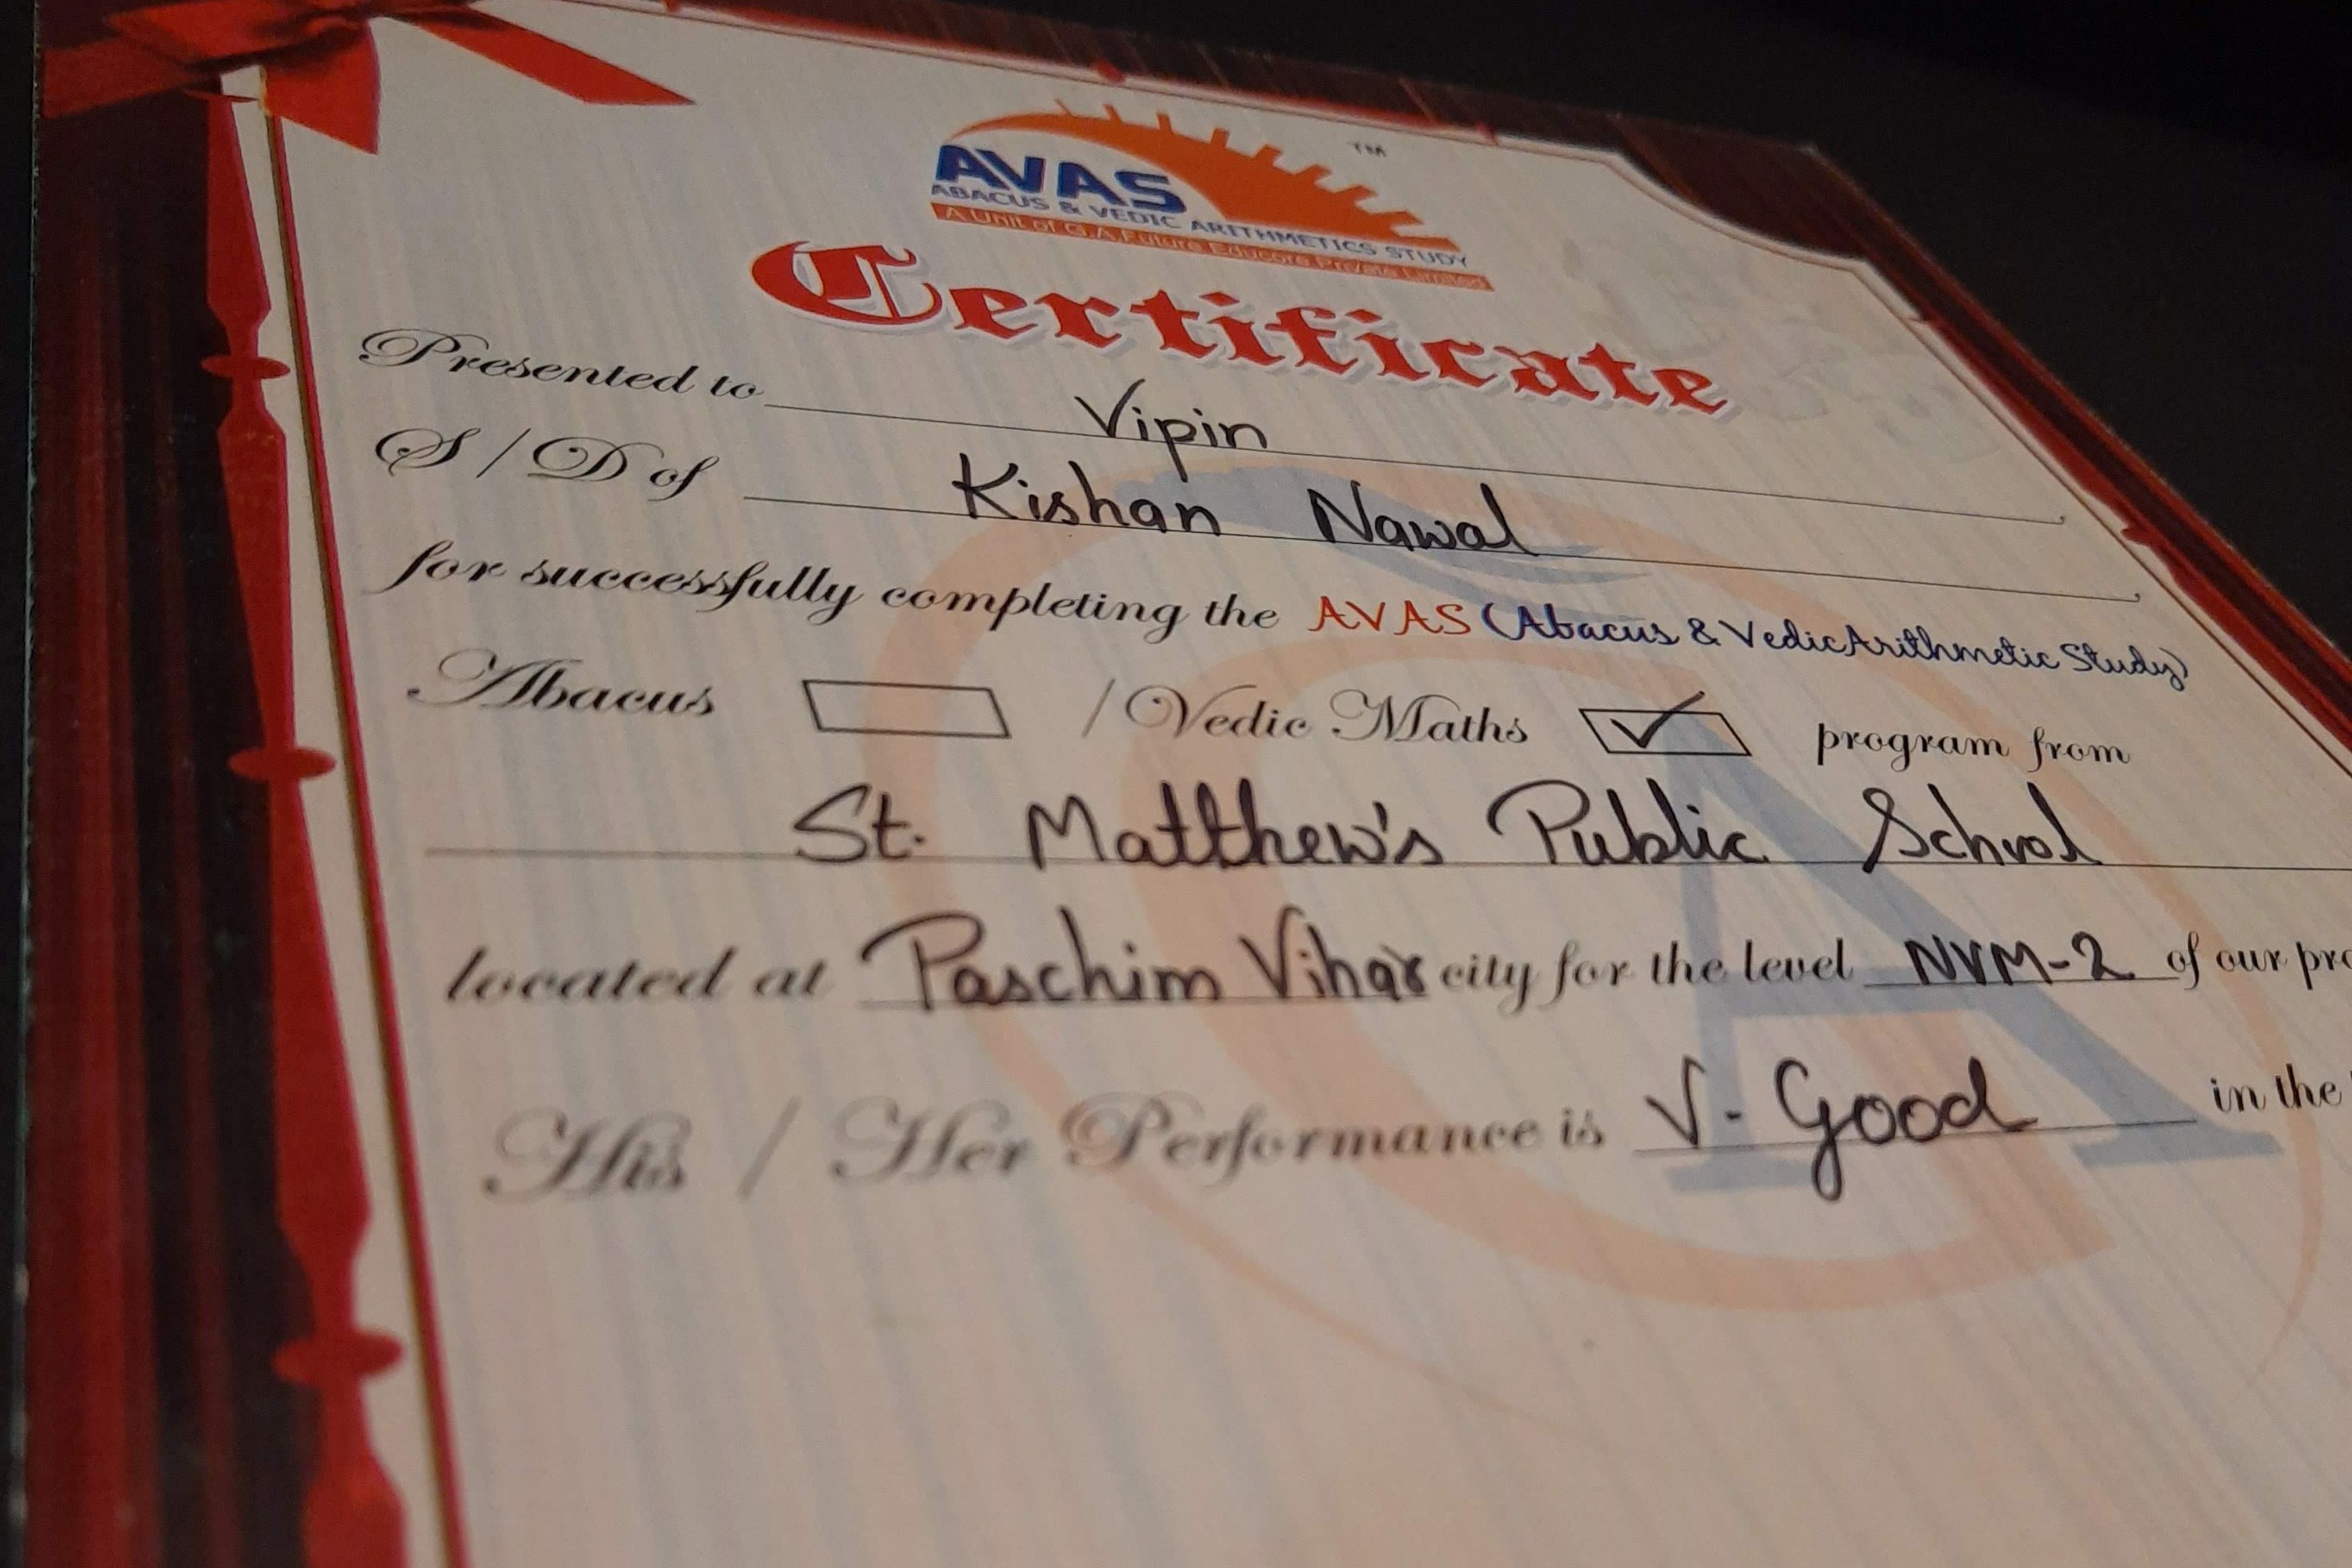 AVAS
TM
ABACUS & VEDIC ARITHMETICS STUDY
A Unit of G.A.Future Educare Private Limited
Certificate
Presented to Vipin
S / D of Kishan Nawal
for successfully completing the AVAS (Abacus & Vedic Arithmetic Study)
Abacus / Vedic Maths ✓ program from
St. Matthew's Public School
located at Paschim Vihar city for the level NVM-2 of our
His / Her Performance is V. Good in the